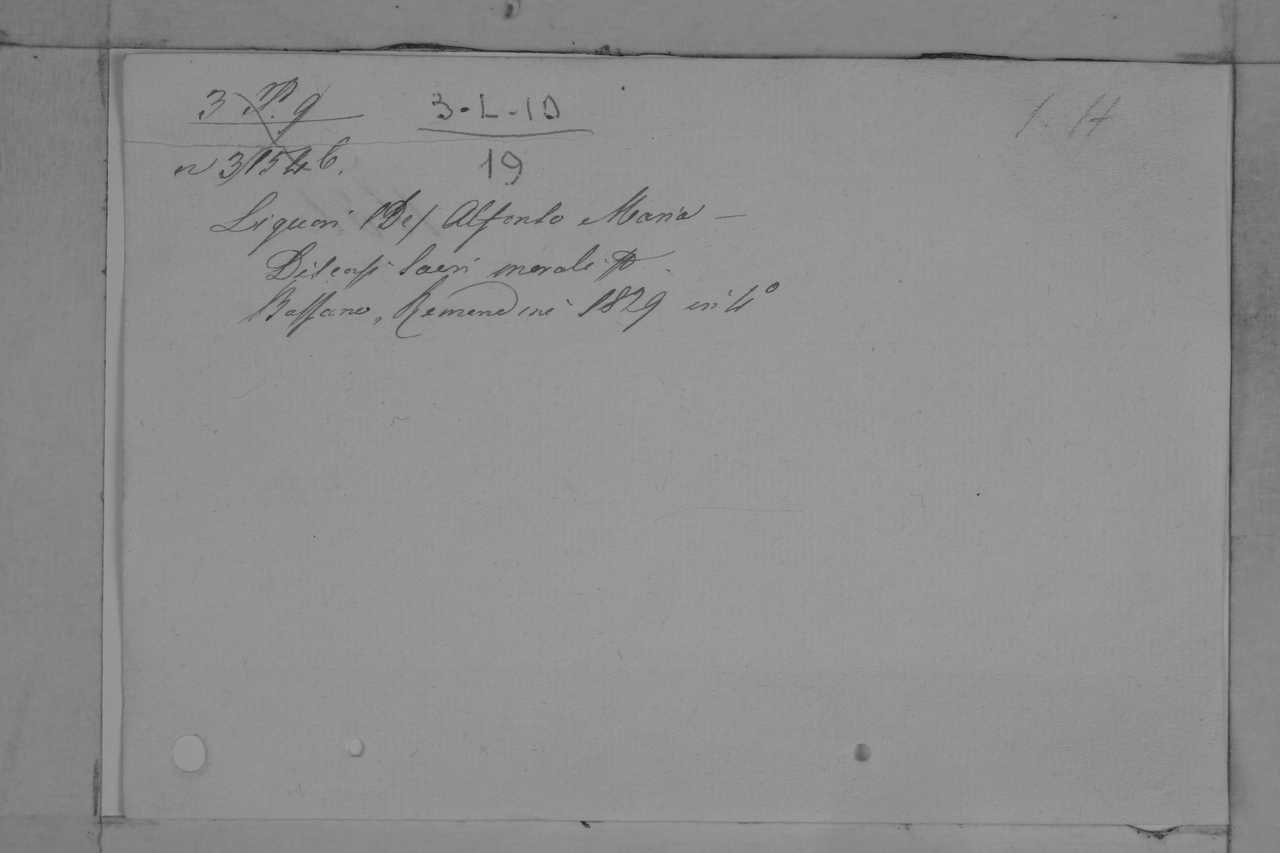 3 P. 9
3-L-10
19
n 3154 6.
Liguori (De) Alfonso Maria —
Discorsi sacri morali
Bassano, Remondini 1829 in 4°